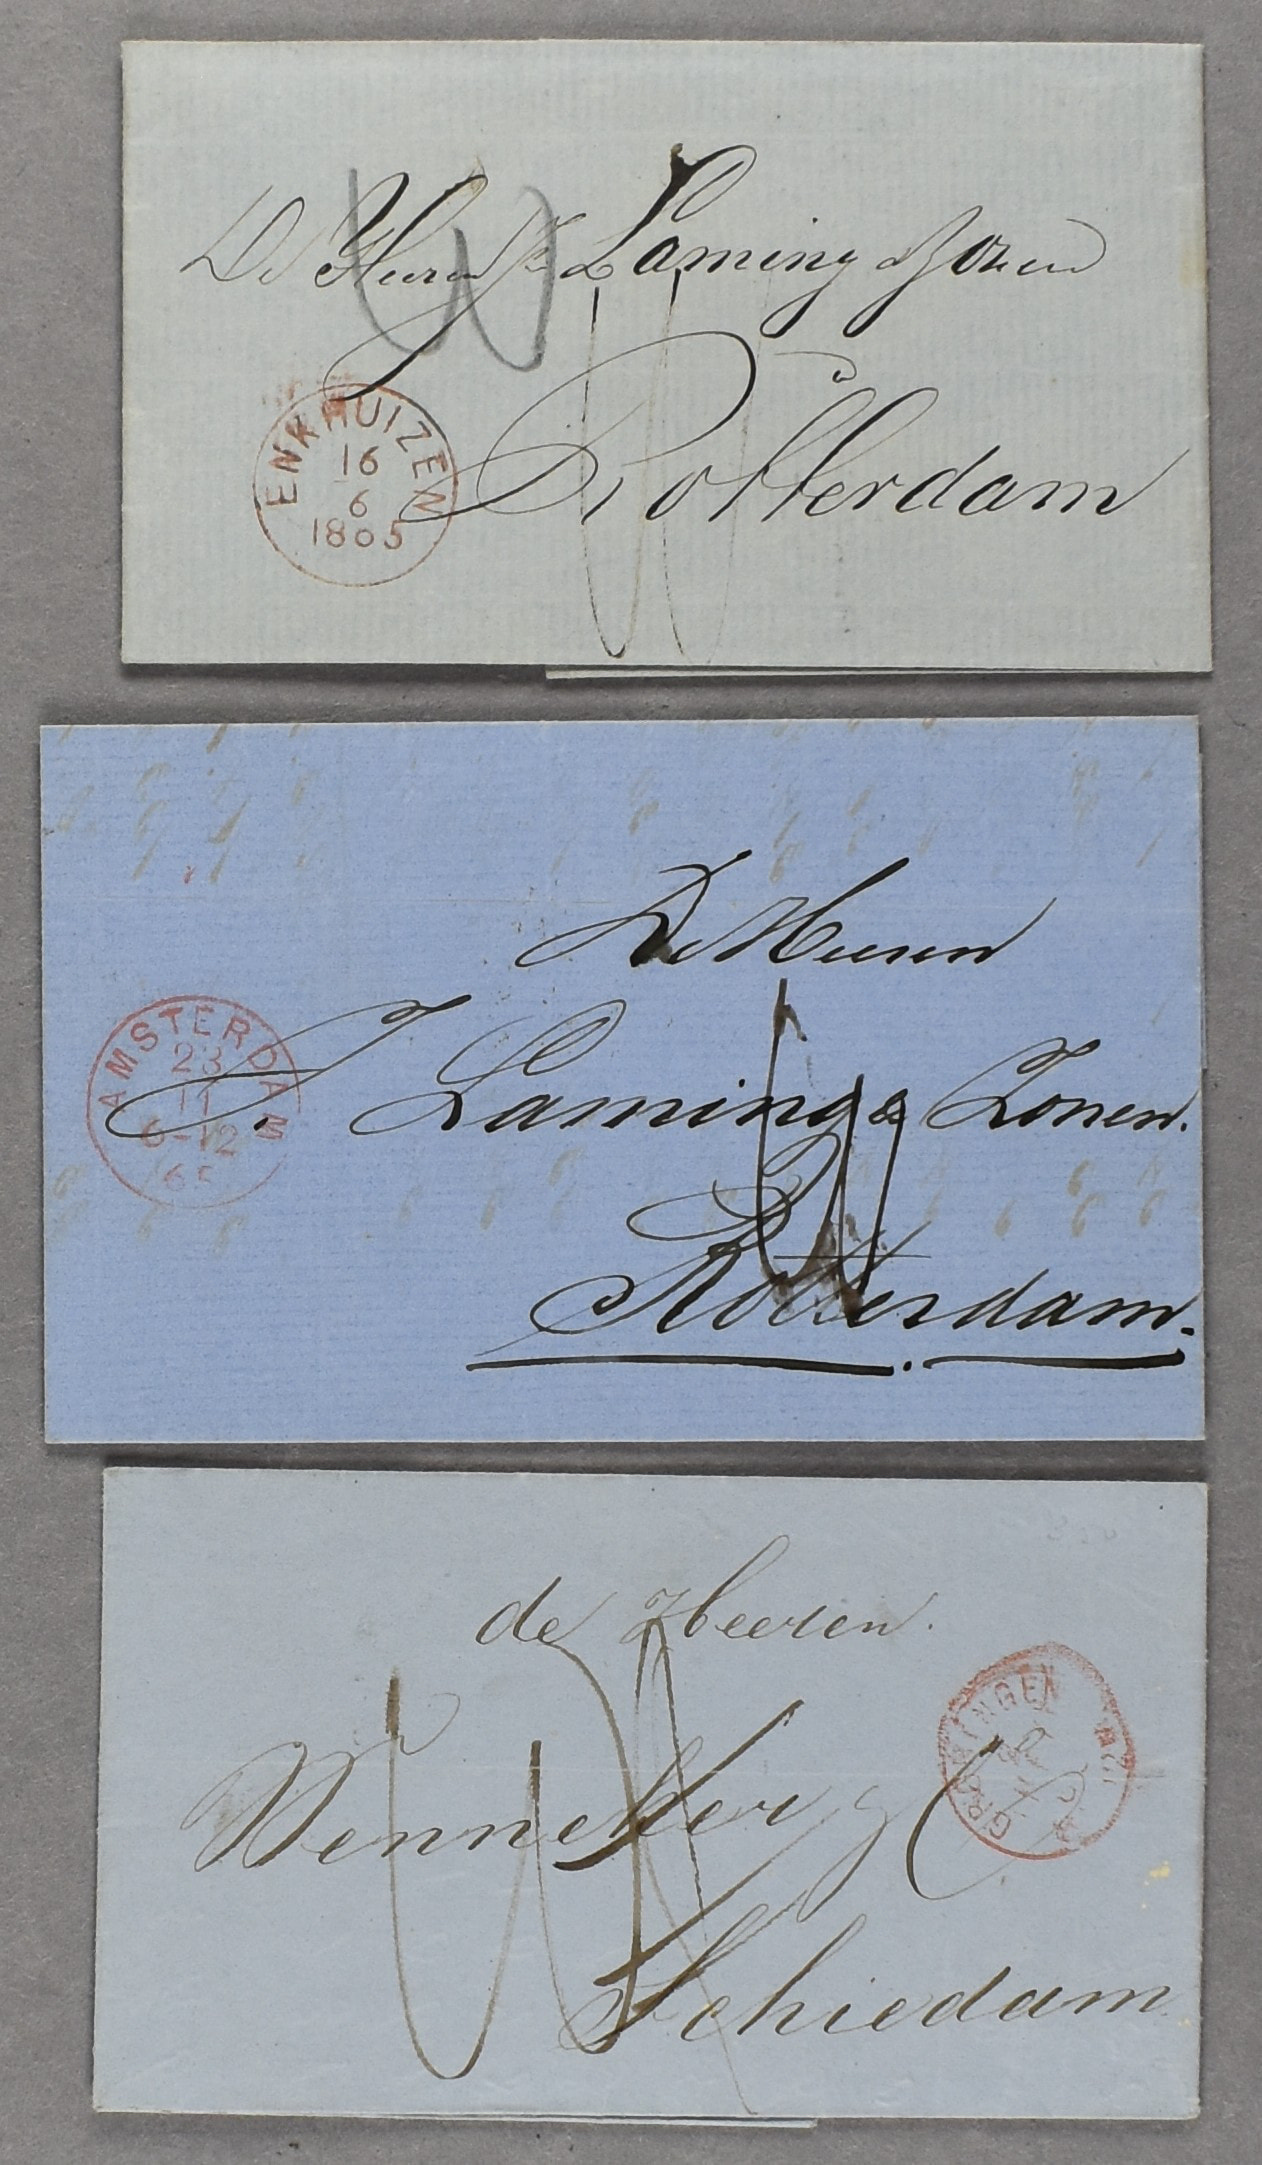 De Heeren J. Laming & Zonen
Rotterdam
ENKHUIZEN
16
6
1865
De Heeren
J. Laming & Zonen.
Rotterdam.
AMSTERDAM
23
11
6-12
65
de Heeren.
Wenneker & C
Schiedam
GRONINGEN